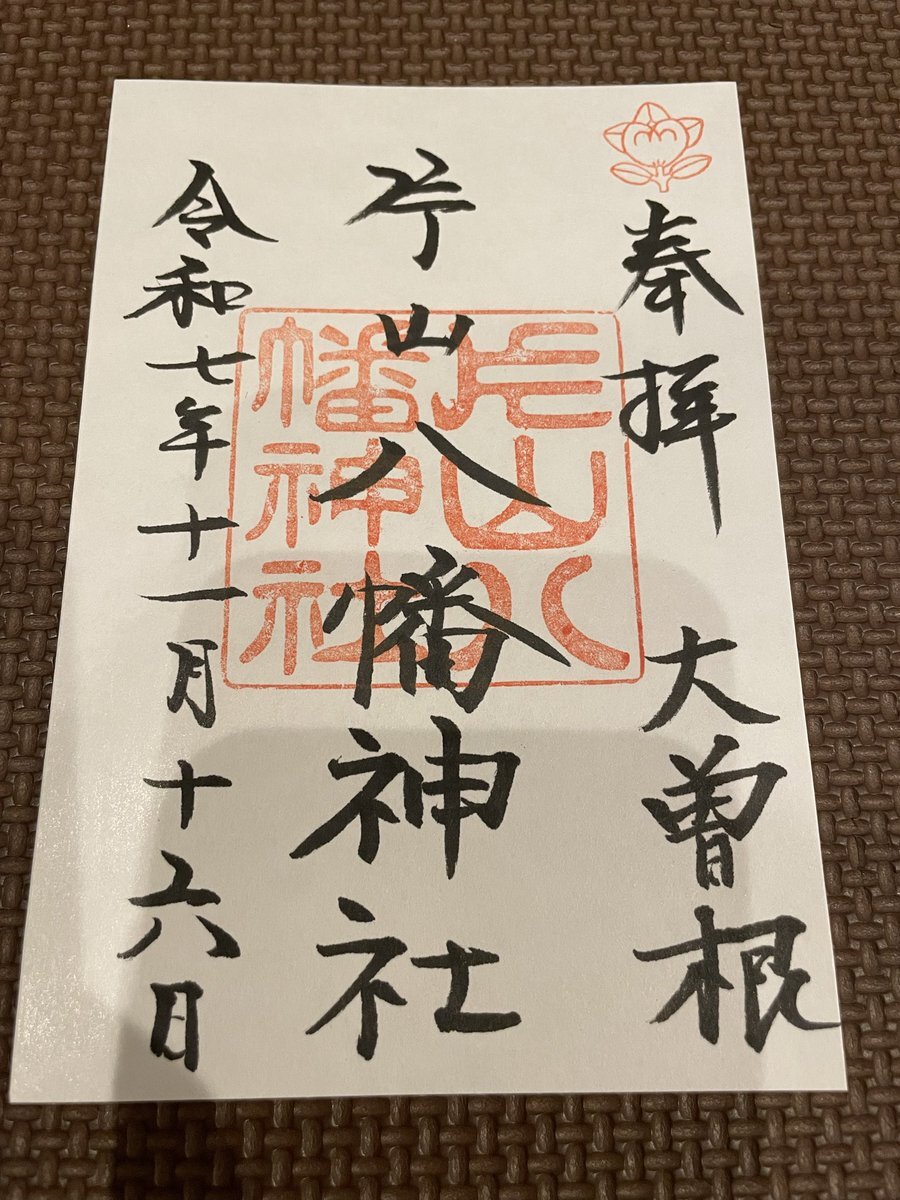 奉拝 大曽根
片山八幡神社
令和七年十一月十六日
片山八
幡神社